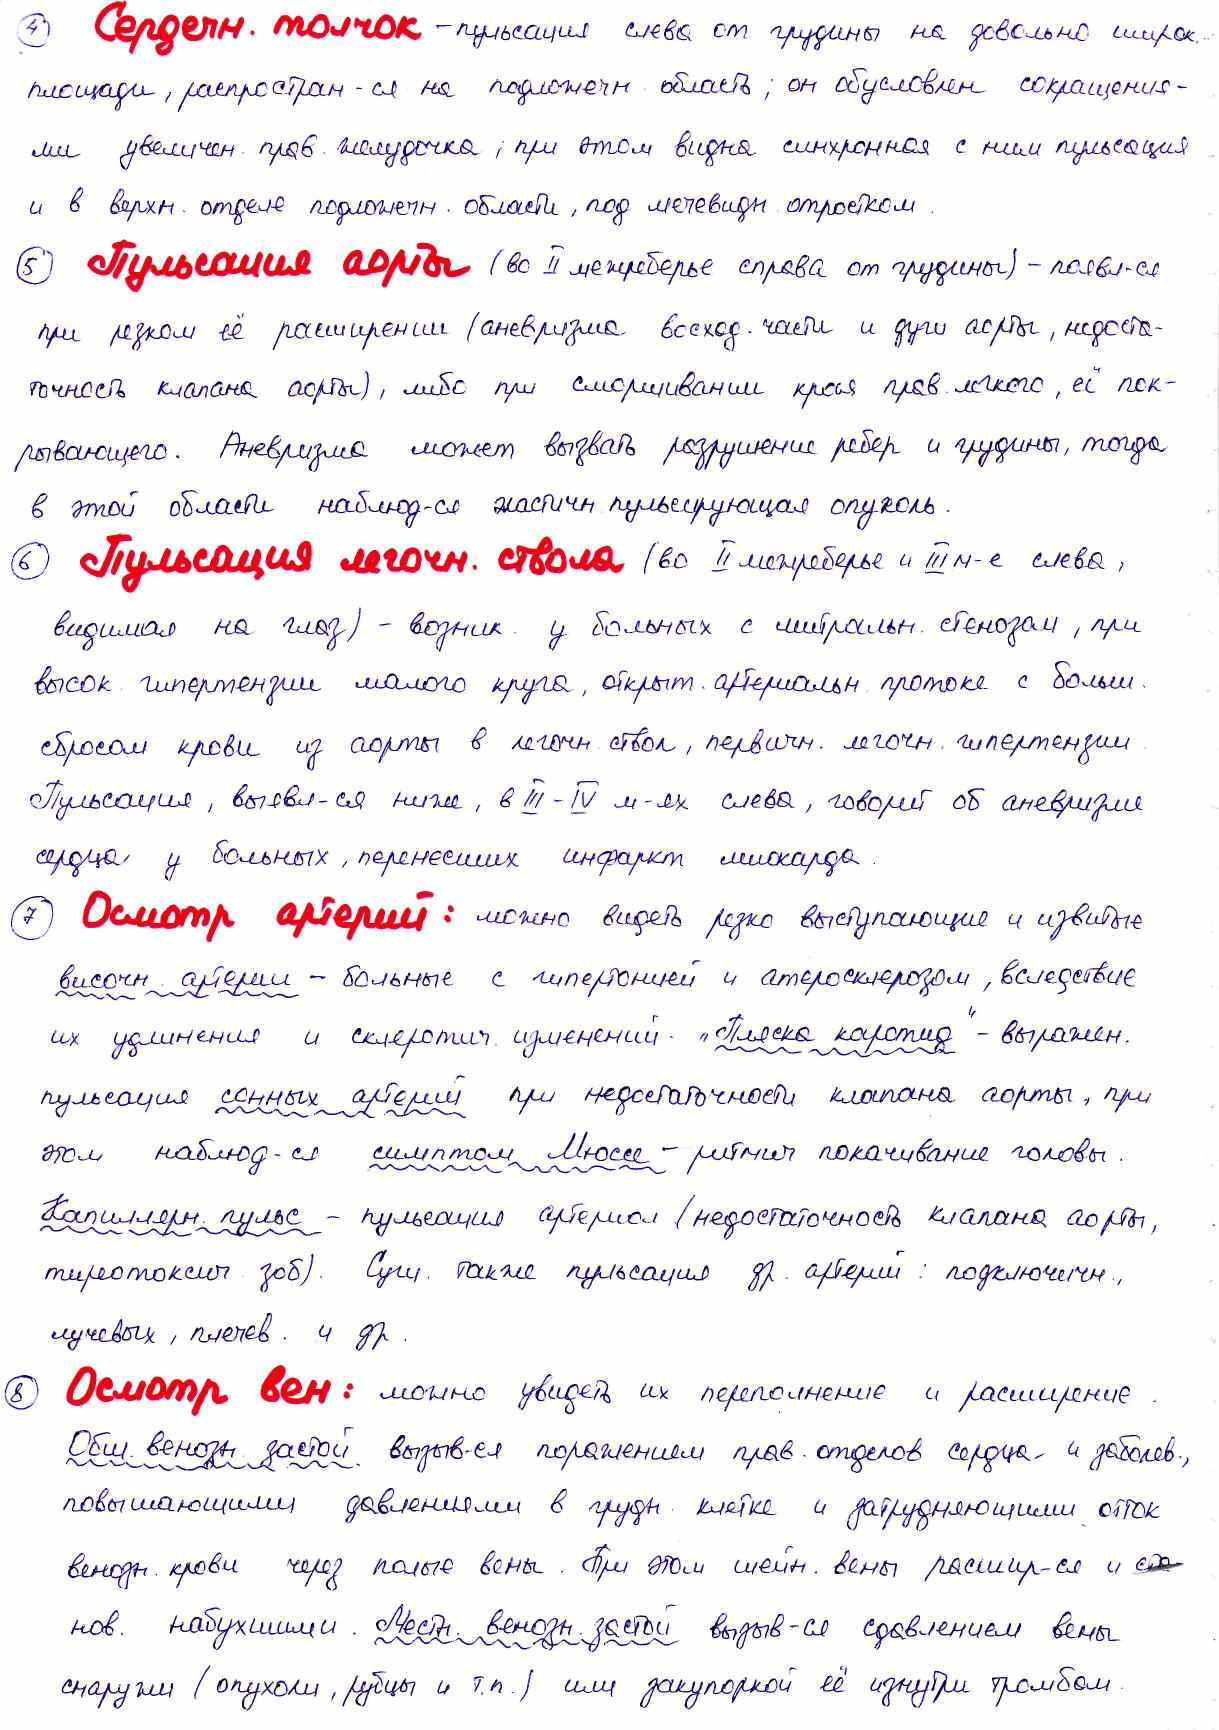 4 Сердечн. толчок – пульсация слева от грудины на довольно широк.
площади, распростран-ся на подложечн. область; он обусловлен сокращения-
ми увеличен. прав. желудочка; при этом видна синхронная с ним пульсация
и в верхн. отделе подложечн. области, под мечевидн. отростком.
5 Пульсация аорты (во II межреберье справа от грудины) – появл-ся
при резком её расширении (аневризма восход. части и дуги аорты, недоста-
точность клапана аорты), либо при сморщивании края прав. легкого, её пок-
рывающего. Аневризма может вызвать разрушение ребер и грудины, тогда
в этой области наблюд-ся эластичн. пульсирующая опухоль.
6 Пульсация легочн. ствола (во II межреберье и III м-е слева,
видимая на глаз) – возник. у больных с митральн. стенозам, при
высок. гипертензии малого круга, открыт. артериальн. протоке с больш.
сбросом крови из аорты в легочн. ствол, первичн. легочн. гипертензии.
Пульсация, выявл-ся ниже, в III – IV м-ях слева, говорит об аневризме
сердца у больных, перенесших инфаркт миокарда.
7 Осмотр артерий: можно видеть резко выступающие и извитые
височн. артерии – больные с гипертонией и атеросклерозом, вследствие
их удлинения и склеротич. изменений. „Пляска каротид“ – выражен.
пульсация сонных артерий при недостаточности клапана аорты, при
этом наблюд-ся симптом Мюссе – ритмич. покачивание головы.
Капиллярн. пульс – пульсация артериол (недостаточность клапана аорты,
тиреотоксич. зоб). Сущ. также пульсация др. артерий: подключичн.,
лучевых, плечев. и др.
8 Осмотр вен: можно увидеть их переполнение и расширение.
Общ. венозн. застой вызыв-ся поражением прав. отделов сердца и заболев.,
повышающими давлениями в грудн. клетке и затрудняющими отток
венозн. крови через полые вены. При этом шейн. вены расшир-ся и
нов. набухшими. Местн. венозн. застой вызыв-ся сдавлением вены
снаружи (опухоли, рубцы и т.п.) или закупоркой её изнутри тромбом.